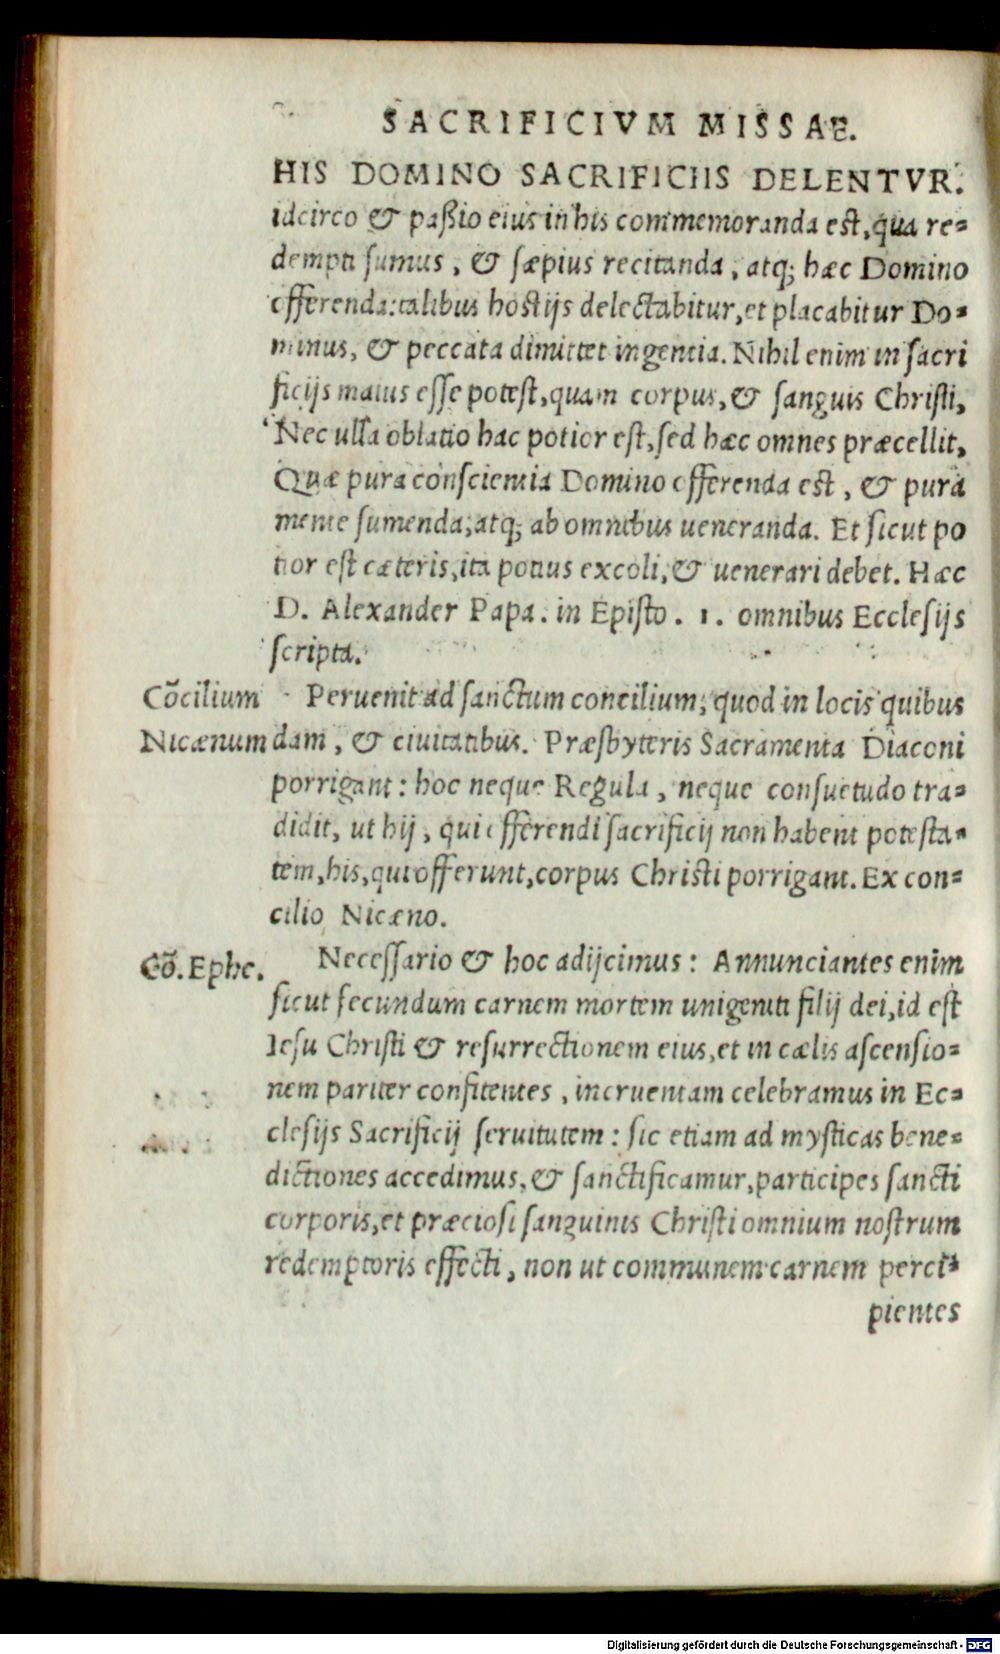 SACRIFICIVM MISSAE.
HIS DOMINO SACRIFICIIS DELENTVR.
idcirco & paßio eius in his commemoranda est, qua re=
dempti sumus, & sæpius recitanda, atq; hæc Domino
offerenda: talibus hostijs delectabitur, et placabitur Do=
minus, & peccata dimittet ingentia. Nihil enim in sacri
ficijs maius esse potest, quam corpus, & sanguis Christi,
Nec ulla oblatio hac potior est, sed hæc omnes præcellit,
Quæ pura conscientia Domino offerenda est, & pura
mente sumenda, atq; ab omnibus ueneranda. Et sicut po
tior est cæteris, ita potius excoli, & uenerari debet. Hæc
D. Alexander Papa. in Episto. 1. omnibus Ecclesijs
scripta.
Cõcilium
Nicænum
Peruenit ad sanctum concilium, quod in locis quibus
dam, & ciuitatibus. Præsbyteris Sacramenta Diaconi
porrigant: hoc neque Regula, neque consuetudo tra=
didit, ut hij, qui offerendi sacrificij non habent potesta=
tem, his, qui offerunt, corpus Christi porrigant. Ex con=
cilio Nicæno.
Cõ. Ephe.
Necessario & hoc adijcimus: Annunciantes enim
sicut secundum carnem mortem unigeniti filij dei, id est
Iesu Christi & resurrectionem eius, et in cælis ascensio=
nem pariter confitentes, incruentam celebramus in Ec=
clesijs Sacrificij seruitutem: sic etiam ad mysticas bene=
dictiones accedimus, & sanctificamur, participes sancti
corporis, et præciosi sanguinis Christi omnium nostrum
redemptoris effecti, non ut communem carnem perci=
pientes
Digitalisierung gefördert durch die Deutsche Forschungsgemeinschaft - DFG